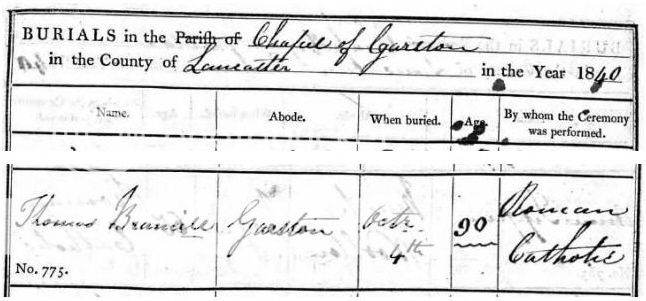 BURIALS in the Parish of Chapel of Garston
in the County of Lancaster in the Year 1840
Name. Abode. When buried. Age. By whom the Ceremony
was performed.
Thomas Garston Octr. 90 Roman
4th Catholic
No. 775.